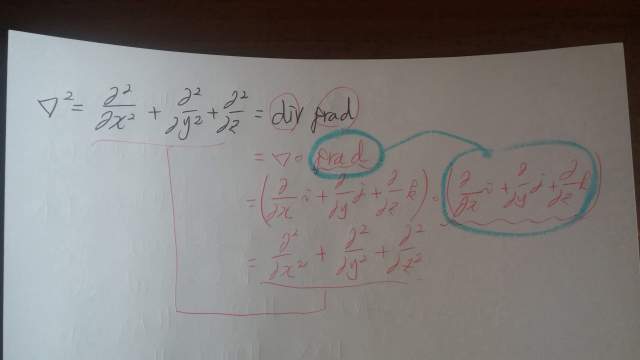 ∇² = ∂²/∂x² + ∂²/∂y² + ∂²/∂z = div grad
= ∇∘ grad
= (∂/∂x i + ∂/∂y j + ∂/∂z k) · (∂/∂x i + ∂/∂y j + ∂/∂z k)
= ∂²/∂x² + ∂²/∂y² + ∂²/∂z²